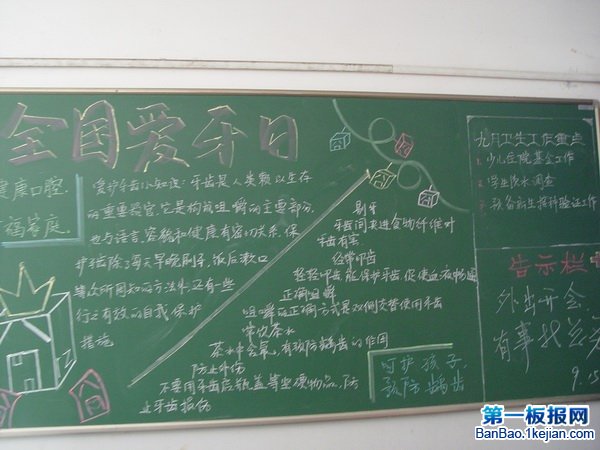 全国爱牙日
健康口腔
福家庭
爱护牙齿小知识：牙齿是人类赖以生存
的重要器官，它是构成咀嚼的主要部分，
也与语言、容貌和健康有密切关系，保
护牙齿除了每天早晚刷牙，饭后漱口
等众所周知的方法外，还有一些
行之有效的自我保护
措施
刷牙
牙齿间夹进食物纤维
牙齿有害
经常叩齿
轻轻叩齿能保护牙齿，促使血液畅通
正确咀嚼
咀嚼的正确方式是双侧交替使用牙齿
常饮茶水
茶水中含氟，有预防龋齿的作用
防止外伤
不要用牙齿咬瓶盖等坚硬物品，防
止牙齿损伤
呵护孩子，
预防龋齿
九月卫生工作重点
1. 少儿住院基金工作
2. 学生饮水调查
3. 预备新生探种验证工作
告示栏
外出开会，
有事找
9.15
第一板报网
BanBao.1kejian.com